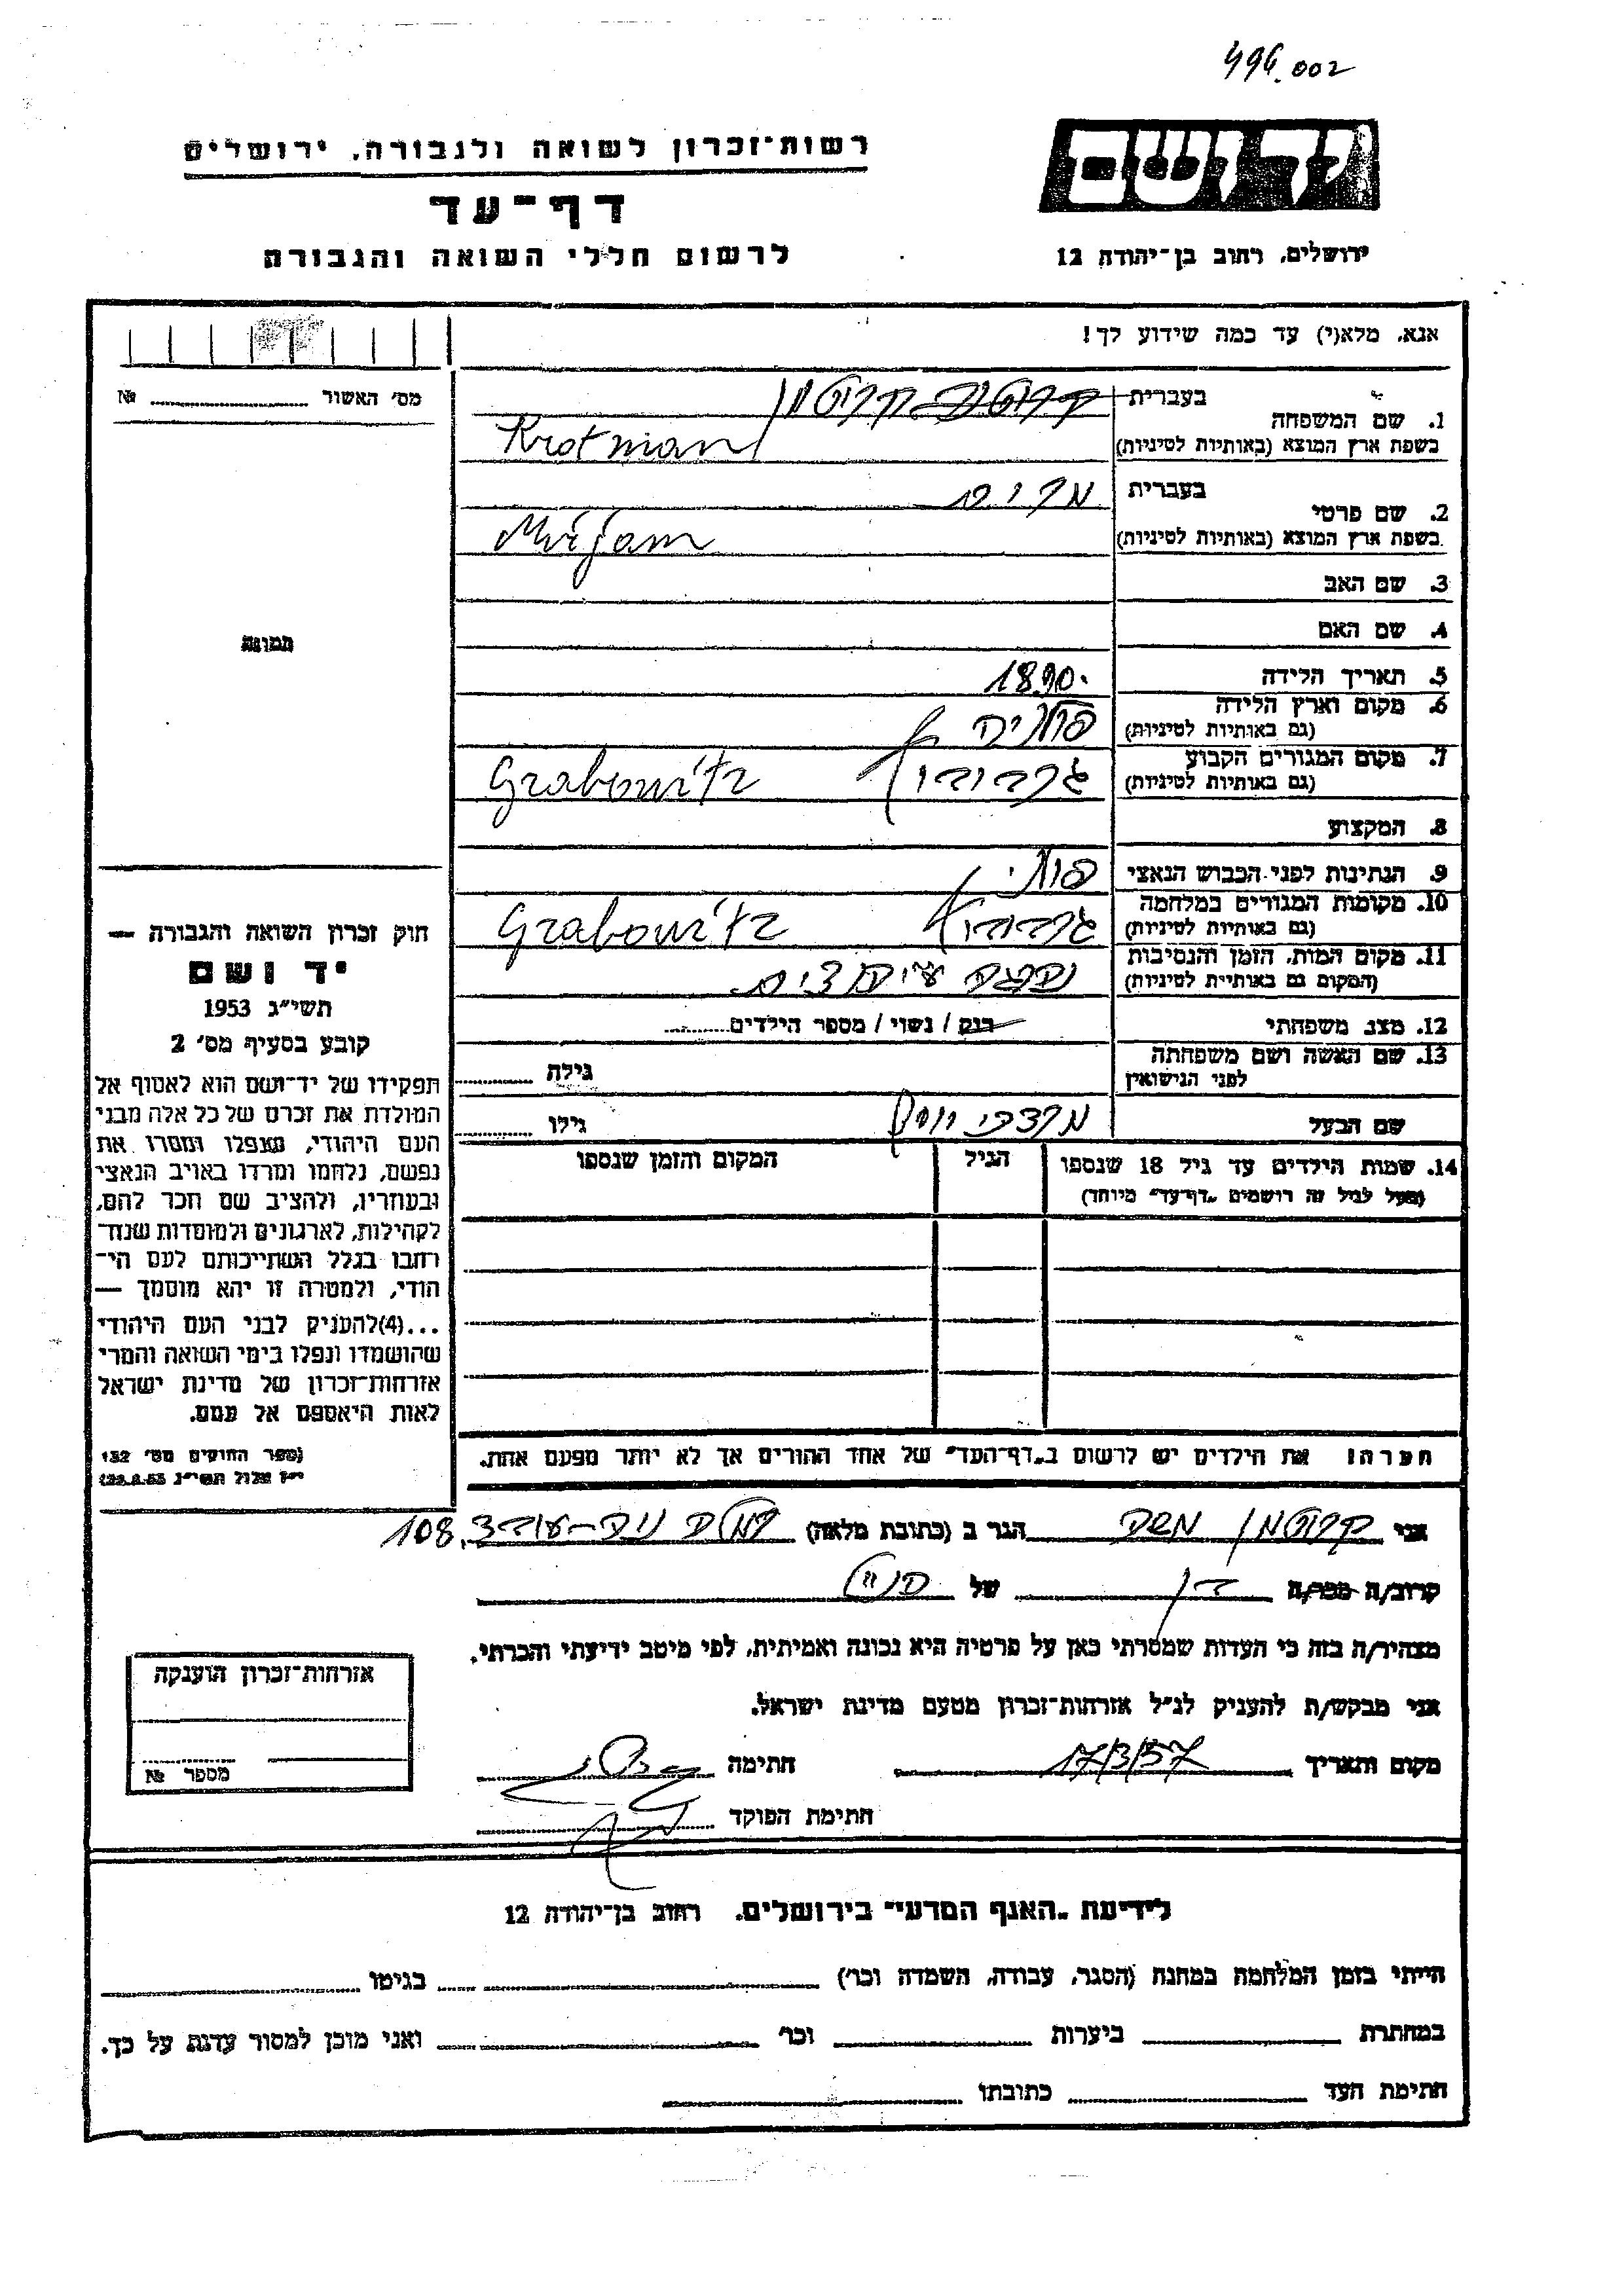 496.002
יד ושם
ירושלים, רחוב בן־יהודה 12
רשות־זכרון לשואה ולגבורה, ירושלים
דף־עד
לרשום חללי השואה והגבורה
אנא, מלא(י) עד כמה שידוע לך!
מס׳ האשור № 
1. שם המשפחה
בעברית קרוטמן
בשפת ארץ המוצא (באותיות לטיניות) Krotman
2. שם פרטי
בעברית מרים
בשפת ארץ המוצא (באותיות לטיניות) Mirjam
3. שם האב
4. שם האם
5. תאריך הלידה 1890
6. מקום וארץ הלידה פולניה
(גם באותיות לטיניות)
7. מקום המגורים הקבוע Grabowitz
(גם באותיות לטיניות)
8. המקצוע
9. הנתינות לפני הכבוש הנאצי
10. מקומות המגורים במלחמה Grabowitz
(גם באותיות לטיניות)
11. מקום המות, הזמן והנסיבות
(המקום גם באותיות לטיניות)
12. מצב משפחתי רוק / נשוי / מספר הילדים
13. שם האשה ושם משפחתה גילה
לפני הנישואין
שם הבעל מרדכי גילו
14. שמות הילדים עד גיל 18 שנספו הגיל המקום והזמן שנספו
(מעל לגיל זה רושמים „דף־עד״ מיוחד)
הערה! את הילדים יש לרשום ב„דף־העד״ של אחד ההורים אך לא יותר מפעם אחת.
תמונה
חוק זכרון השואה והגבורה —
יד ושם
תשי״ג 1953
קובע בסעיף מס׳ 2
תפקידו של יד־ושם הוא לאסוף אל
המולדת את זכרם של כל אלה מבני
העם היהודי, שנפלו ומסרו את
נפשם, נלחמו ומרדו באויב הנאצי
ובעוזריו, ולהציב שם וזכר להם,
לקהילות, לארגונים ולמוסדות שנח־
רבו בגלל השתייכותם לעם הי־
הודי, ולמטרה זו יהא מוסמך —
...(4)להעניק לבני העם היהודי
שהושמדו ונפלו בימי השואה והמרי
אזרחות־זכרון של מדינת ישראל
לאות היאספם אל עמם.
(ספר החוקים מס׳ 132
י״ז אלול תשי״ג 28.8.53)
אני קרוטמן משה הגר ב (כתובת מלאה) 108
קרוב/ה מכר/ה בן של הנ״ל
מצהיר/ה בזה כי העדות שמסרתי כאן על פרטיה היא נכונה ואמיתית, לפי מיטב ידיעתי והכרתי.
אני מבקש/ת להעניק לנ״ל אזרחות־זכרון מטעם מדינת ישראל.
מקום ותאריך 17/3/57 חתימה
חתימת הפוקד
אזרחות־זכרון הוענקה
מספר №
לידיעת „האגף המדעי״ בירושלים, רחוב בן־יהודה 12
הייתי בזמן המלחמה במחנה (הסגר, עבודה, השמדה וכו׳) בגיטו
במחתרת ביערות וכו׳ ואני מוכן למסור עדות על כך.
חתימת העד כתובתו